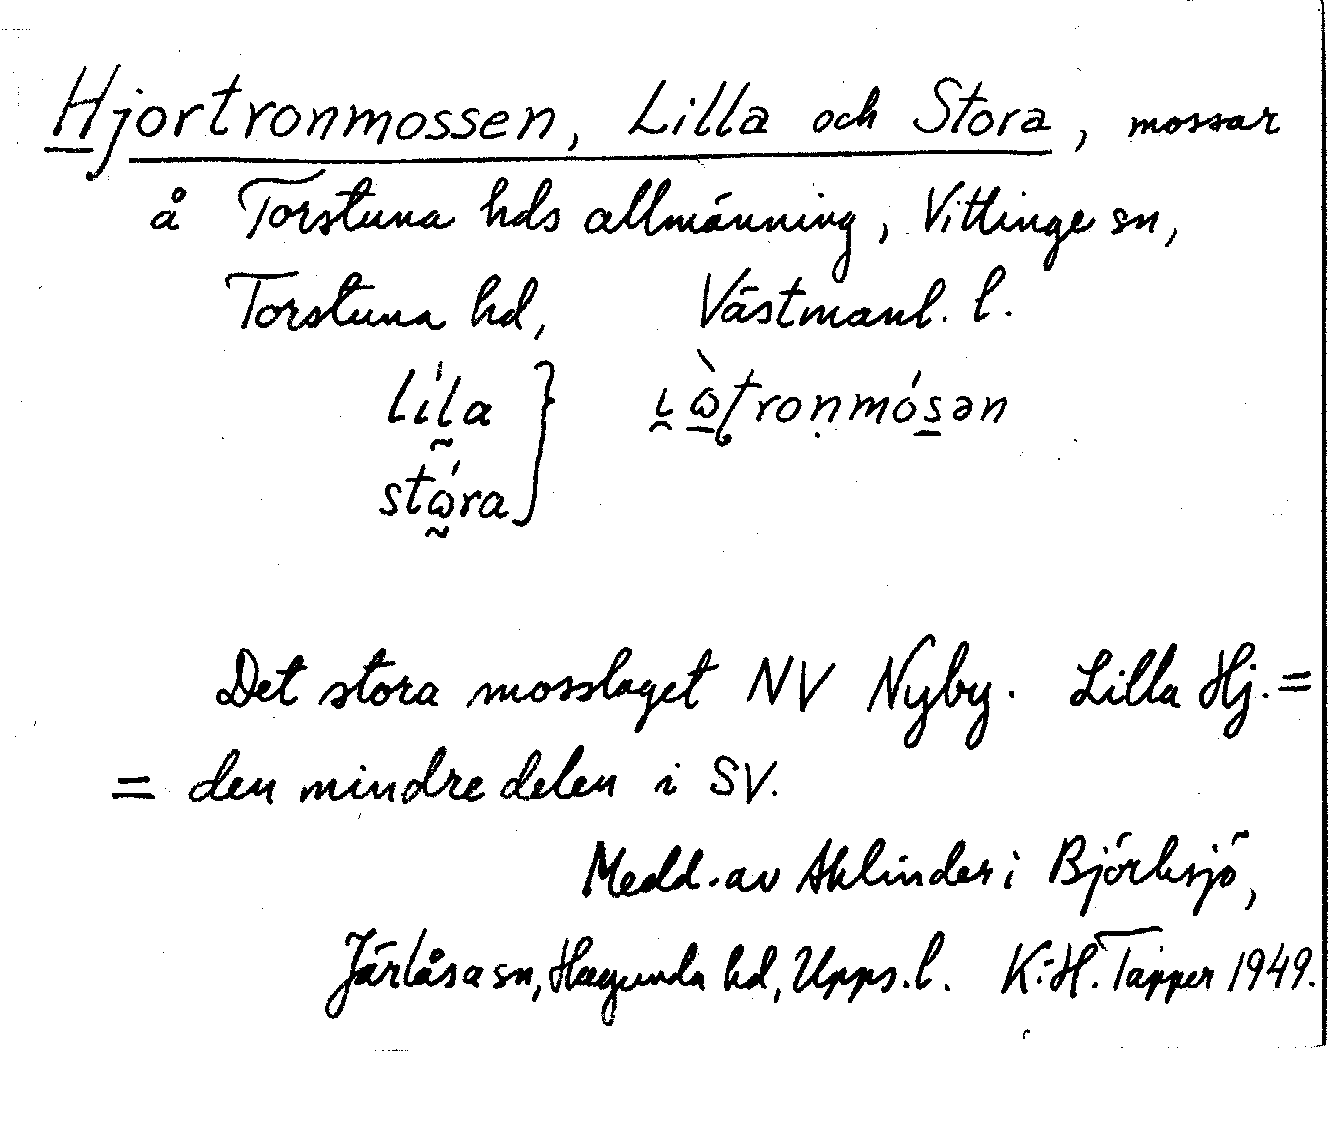 Hjortronmossen, Lilla och Stora, mossar
å Torstuna hds allmänning, Vittinge sn,
Torstuna hd, Västmanl. l.
líla } ɩὼtronmósən
stώra
Det stora mosslaget NV Nyby. Lilla Hj. =
= den mindre delen i SV.
Medd. av Ahlinder i Björksjö,
Järlåsa sn, Hagunda hd, Upps. l. K.-H. Tapper 1949.